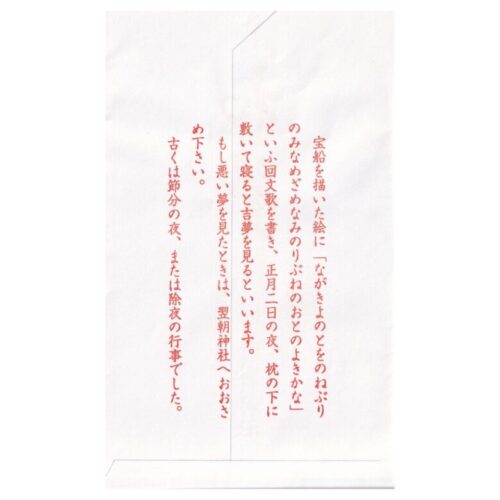 宝船を描いた絵に「ながきよのとをのねぶり
のみなめざめなみのりぶねのおとのよきかな」
といふ回文歌を書き、正月二日の夜、枕の下に
敷いて寝ると吉夢を見るといいます。
もし悪い夢を見たときは、翌朝神社へおおさ
め下さい。
古くは節分の夜、または除夜の行事でした。